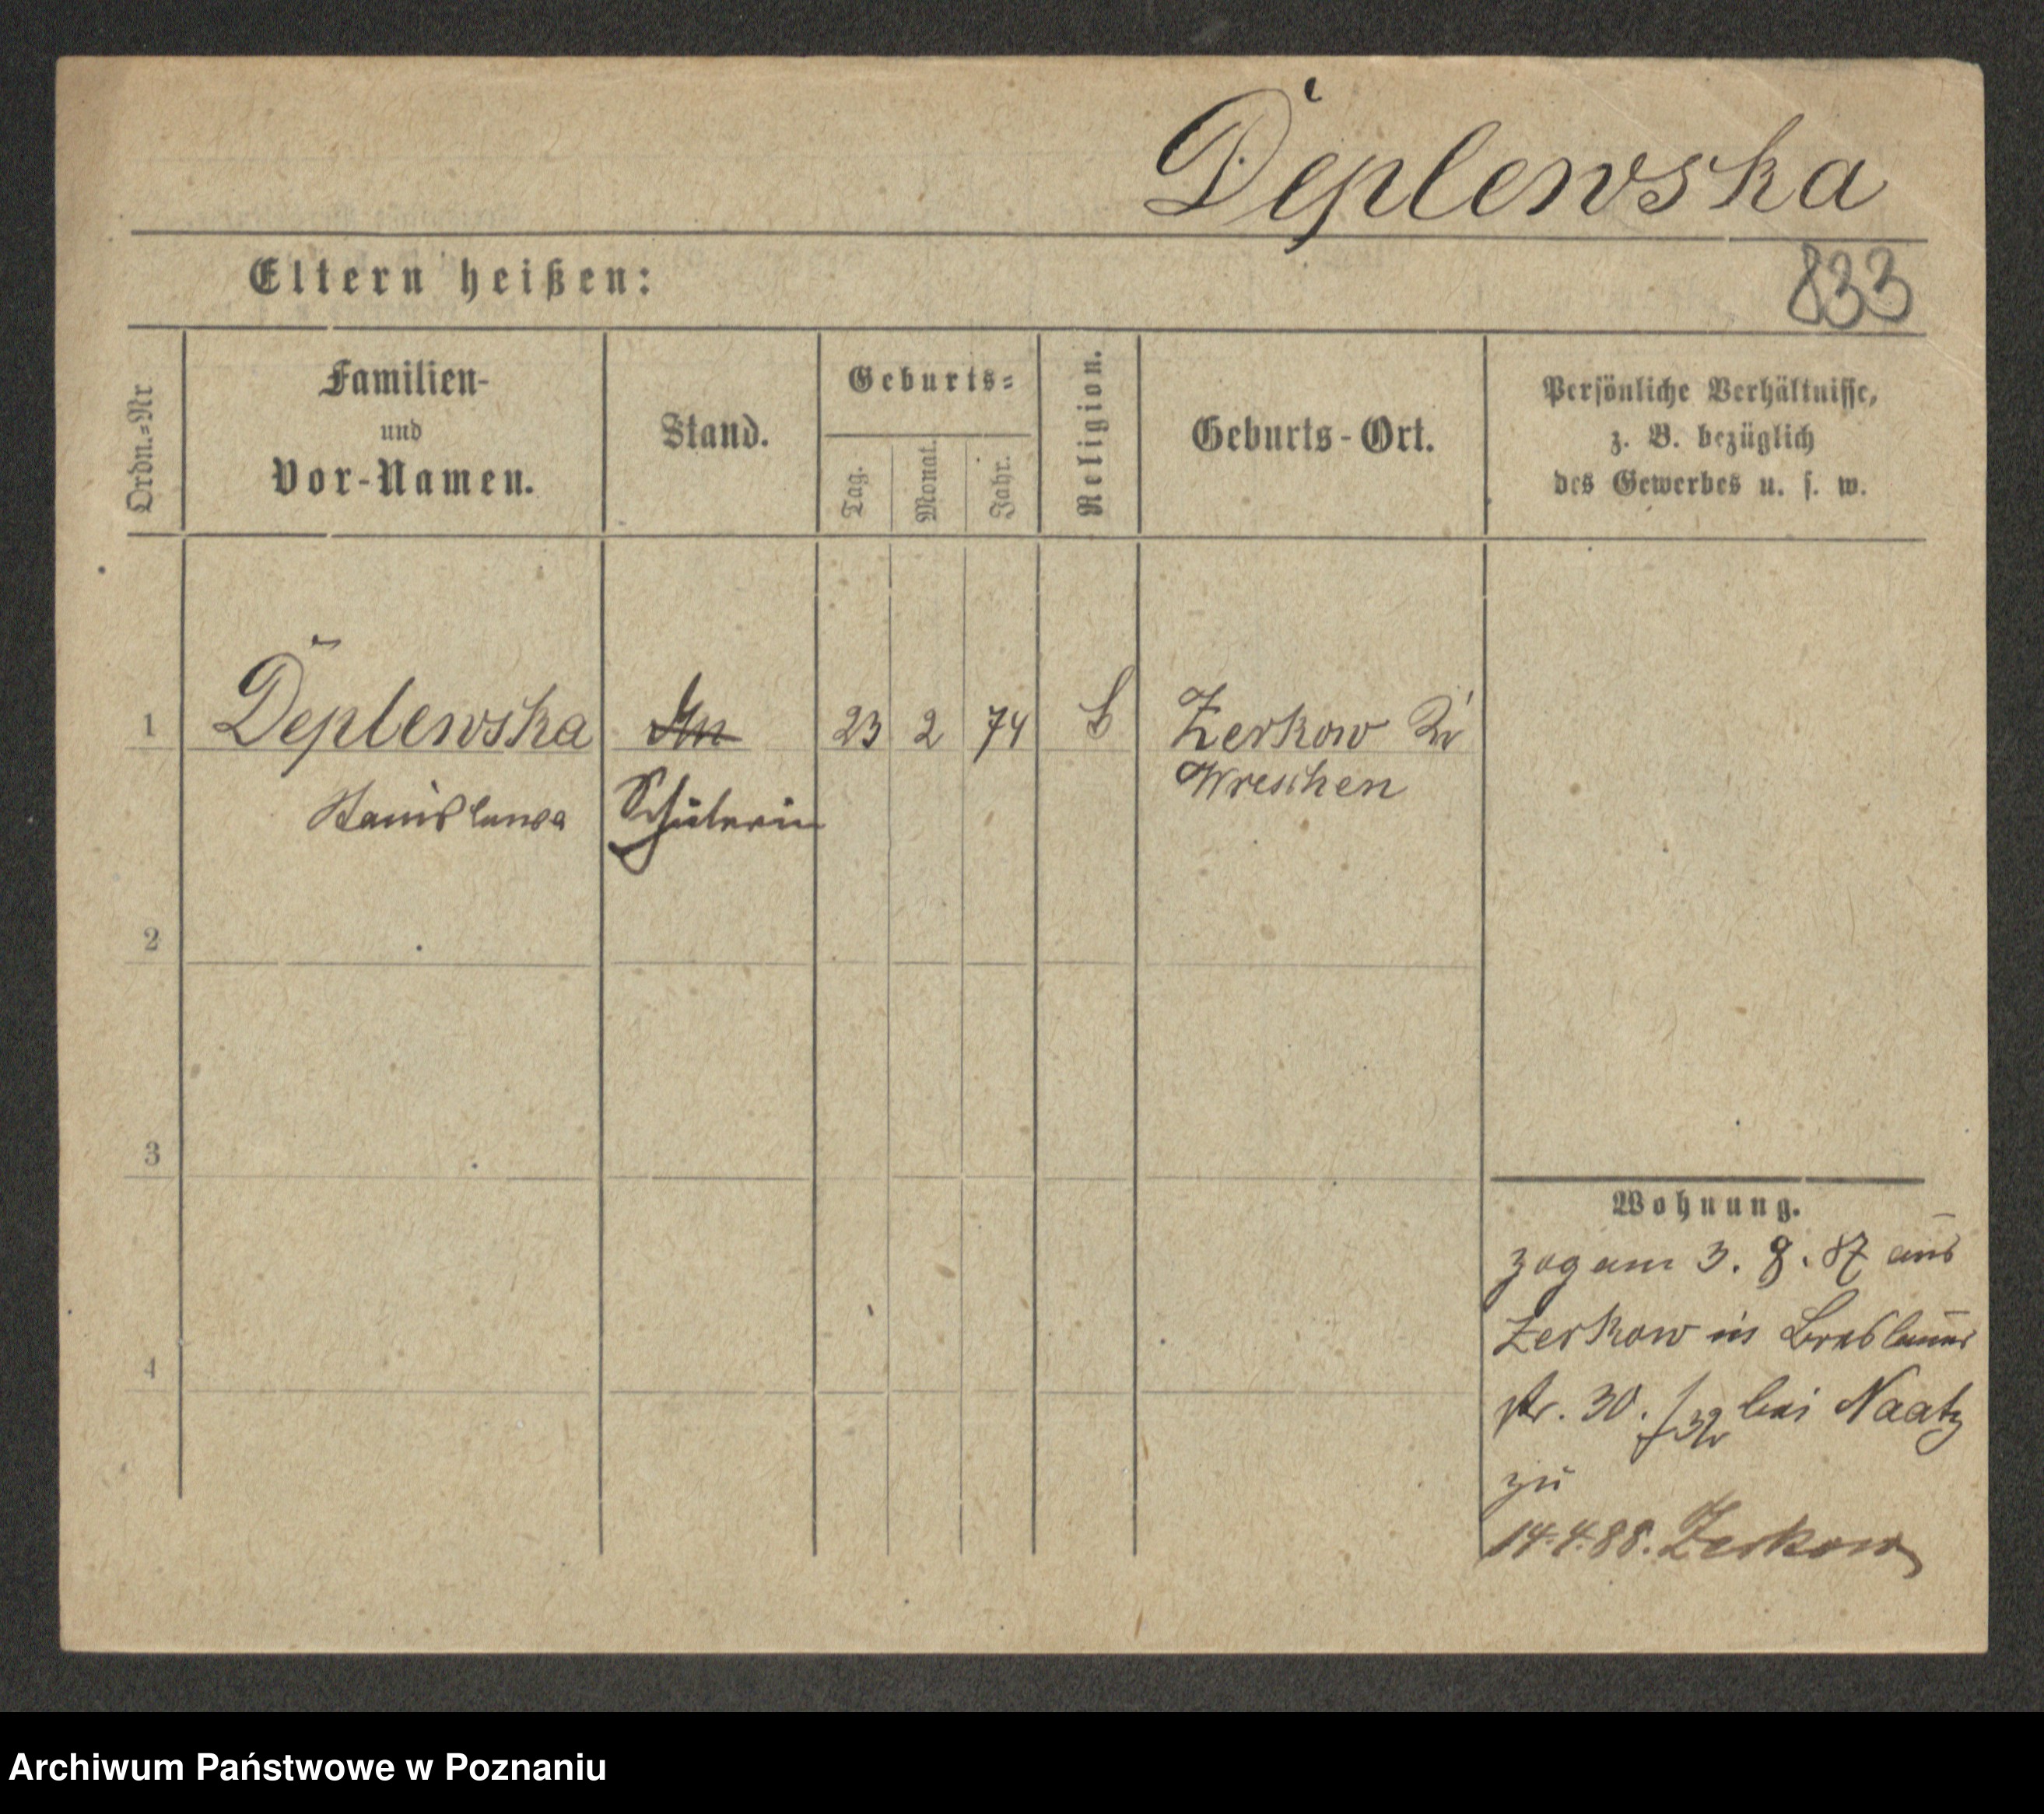 Deplewska
833
Eltern heißen:
Ordn.-Nr
Familien-
und
Vor-Namen.
Stand.
Geburts-
Tag.
Monat.
Jahr.
Religion.
Geburts-Ort.
Persönliche Verhältnisse,
z. B. bezüglich
des Gewerbes u. s. w.
1 Deplewska 23 2 74 Zerkow Kr
Wreschen
Stanislawa Schülerin
2
3
4
Wohnung.
zog am 3. 8. 87 aus
Zerkow in Breslauer
str. 30. /32 bei Naatz
zu
14.4.88. Zerkow
Archiwum Państwowe w Poznaniu